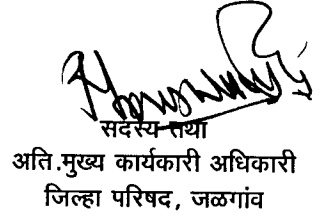 सदस्य तथा
अति.मुख्य कार्यकारी अधिकारी
जिल्हा परिषद, जळगांव